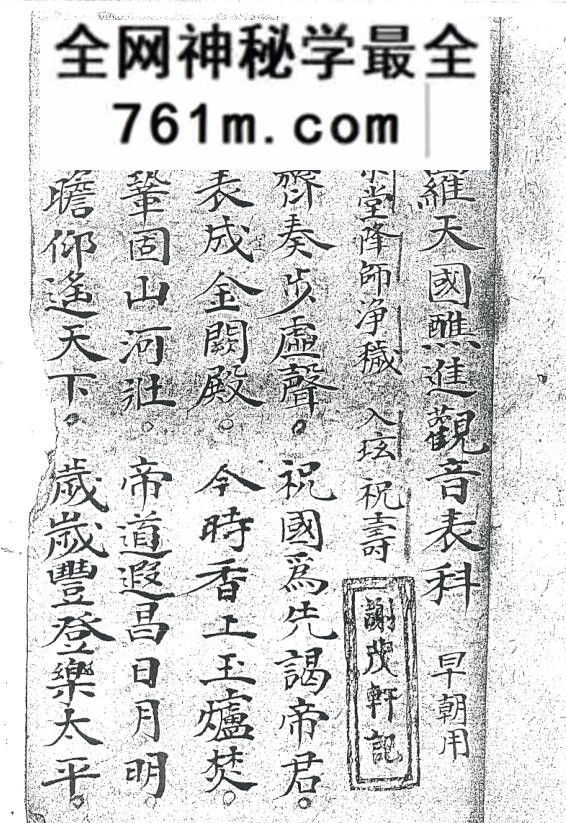 全网神秘学最全
761m.com
羅天國醮進觀音表科 早朝用
堂降師淨穢 入坛 祝壽
謝茂軒記
齊奏步虛聲。祝國爲先謁帝君。
表成金闕殿。今時香工玉爐焚。
鞏固山河壯。帝道遐昌日月明。
瞻仰遙天下。歲歲豐登樂太平。